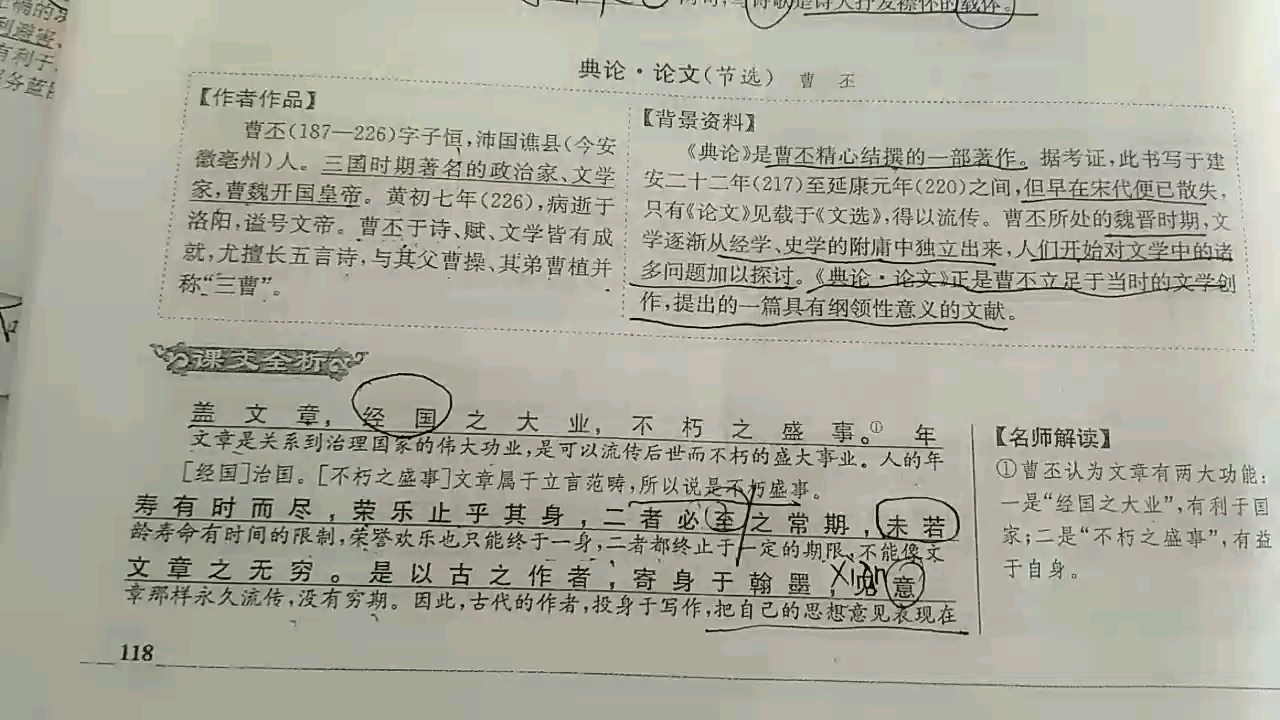 确的
利避害、
有利于
是诗人抒发襟怀的载体。
典论·论文(节选) 曹 丕
【作者作品】
曹丕(187—226)字子恒,沛国谯县(今安
徽亳州)人。三国时期著名的政治家、文学
家,曹魏开国皇帝。黄初七年(226),病逝于
洛阳,谥号文帝。曹丕于诗、赋、文学皆有成
就,尤擅长五言诗,与其父曹操、其弟曹植并
称“三曹”。
【背景资料】
《典论》是曹丕精心结撰的一部著作。据考证,此书写于建
安二十二年(217)至延康元年(220)之间,但早在宋代便已散失,
只有《论文》见载于《文选》,得以流传。曹丕所处的魏晋时期,文
学逐渐从经学、史学的附庸中独立出来,人们开始对文学中的诸
多问题加以探讨。《典论·论文》正是曹丕立足于当时的文学创
作,提出的一篇具有纲领性意义的文献。
课文全析
盖文章,经国之大业,不朽之盛事。① 年
文章是关系到治理国家的伟大功业,是可以流传后世而不朽的盛大事业。人的年
[经国]治国。[不朽之盛事]文章属于立言范畴,所以说是不朽盛事。
寿有时而尽,荣乐止乎其身,二者必至之常期,未若
龄寿命有时间的限制,荣誉欢乐也只能终于一身,二者都终止于一定的期限,不能像文
文章之无穷。是以古之作者,寄身于翰墨,见意
xiàn
章那样永久流传,没有穷期。因此,古代的作者,投身于写作,把自己的思想意见表现在
【名师解读】
①曹丕认为文章有两大功能:
一是“经国之大业”,有利于国
家;二是“不朽之盛事”,有益
于自身。
118